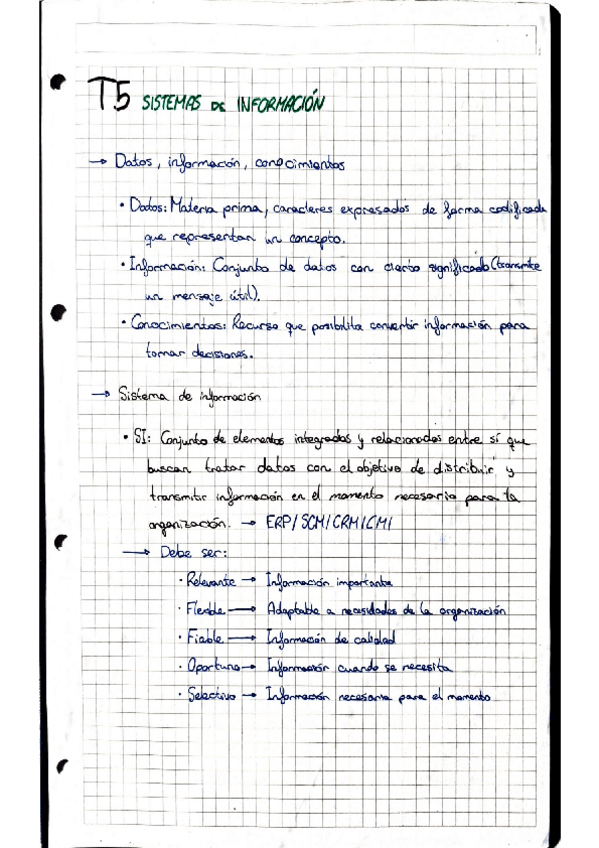 T5 SISTEMAS DE INFORMACIÓN
→ Datos, información, conocimientos
• Datos: Materia prima, caracteres expresados de forma codificada
que representan un concepto.
• Información: Conjunto de datos con cierto significado (transmite
un mensaje útil).
• Conocimientos: Recurso que posibilita convertir información para
tomar decisiones.
→ Sistema de información
• SI: Conjunto de elementos integrados y relacionados entre sí que
buscan tratar datos con el objetivo de distribuir y
transmitir información en el momento necesario para la
organización. → ERP/SCM/CRM/CMI
→ Debe ser:
· Relevante → Información importante
· Flexible → Adaptable a necesidades de la organización
· Fiable → Información de calidad
· Oportuno → Información cuando se necesita
· Selectivo → Información necesaria para el momento